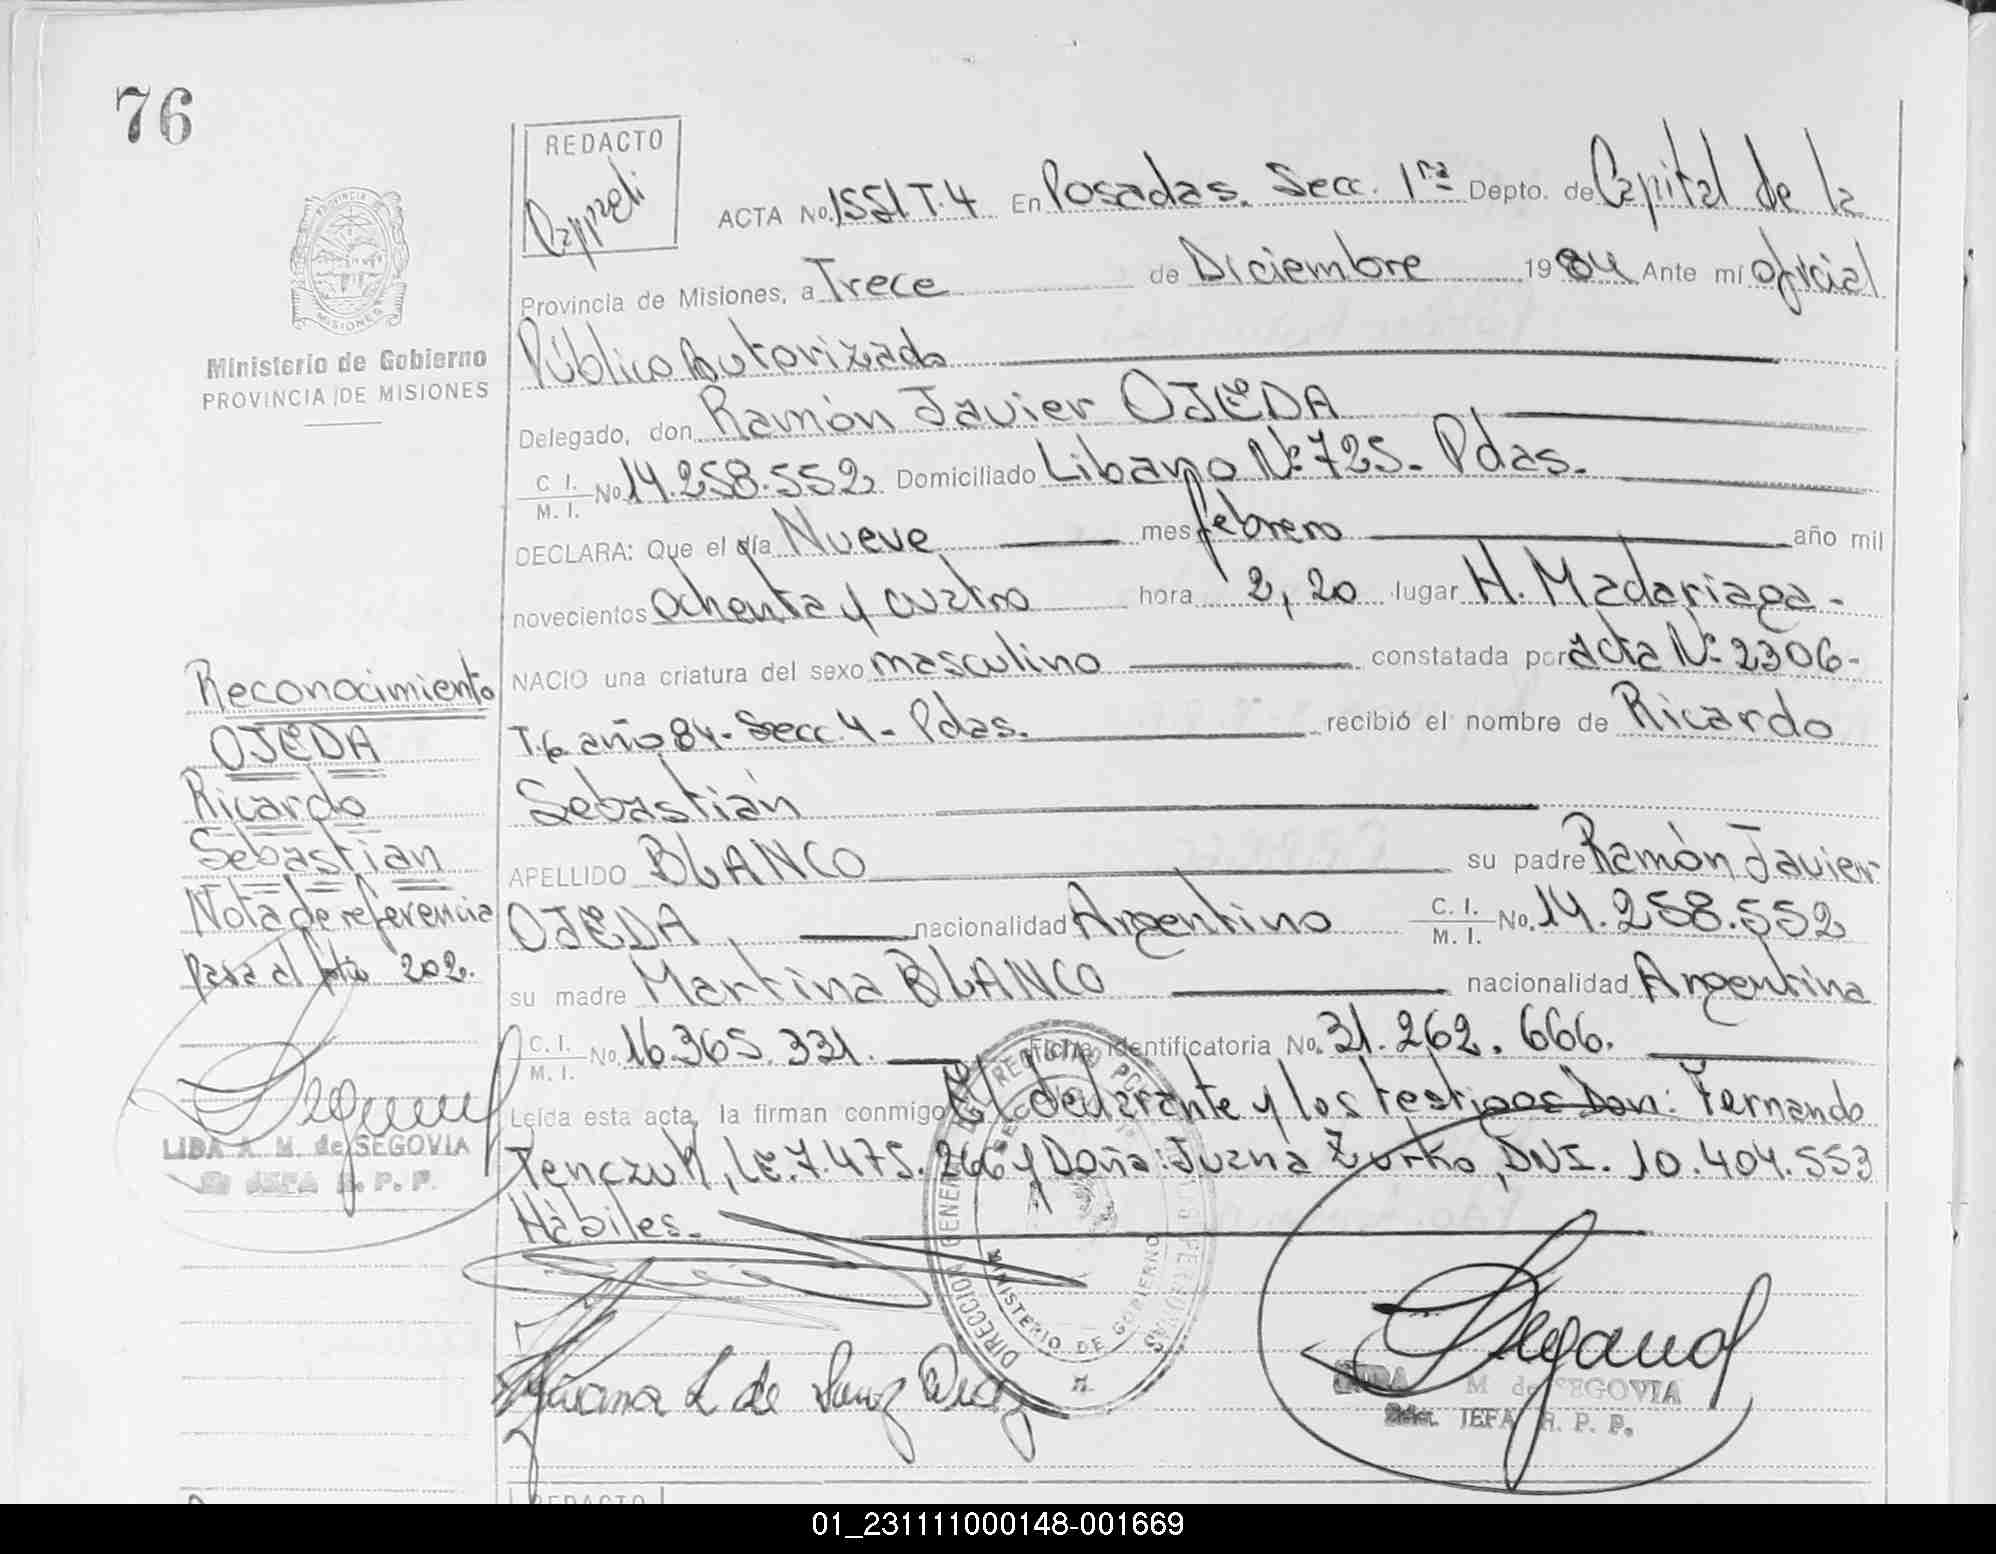 76
REDACTO
Cappeli
ACTA No. 1551 T.4 En Posadas. Secc. 1ra Depto. de Capital de la
Provincia de Misiones, a Trece de Diciembre 1984 Ante mí oficial
Público Autorizado
Delegado, don Ramón Javier OJEDA
C. I. / M. I. No 14.258.552 Domiciliado Libano Nº 725- Pdas.
DECLARA: Que el día Nueve mes febrero año mil
novecientos ochenta y cuatro hora 2,20 lugar H. Madariaga-
NACIO una criatura del sexo masculino constatada por acta Nº 2306-
T.6 año 84- Secc. 4- Pdas. recibió el nombre de Ricardo
Sebastián
APELLIDO BLANCO su padre Ramón Javier
OJEDA nacionalidad Argentino C. I. / M. I. No. 14.258.552
su madre Martina BLANCO nacionalidad Argentina
C. I. / M. I. No. 16.365.331. Ficha Identificatoria No. 31.262.666.
Leída esta acta, la firman conmigo El declarante y los testigos Don: Fernando
Tenczuk, LE. 7.475.266 y Doña: Juana Zurko, DNI. 10.404.553
Hábiles.-
Juana L de
M de SEGOVIA
JEFA R. P. P.
PROVINCIA
MISIONES
Ministerio de Gobierno
PROVINCIA DE MISIONES
Reconocimiento
OJEDA
Ricardo
Sebastian
Nota de referencia
pasa al folio 202.
LIBA A. M. de SEGOVIA
JEFA R. P. P.
DIRECCION GENERAL REGISTRO PCIAL DE LAS PERSONAS
MINISTERIO DE GOBIERNO
REDACTO
01_231111000148-001669